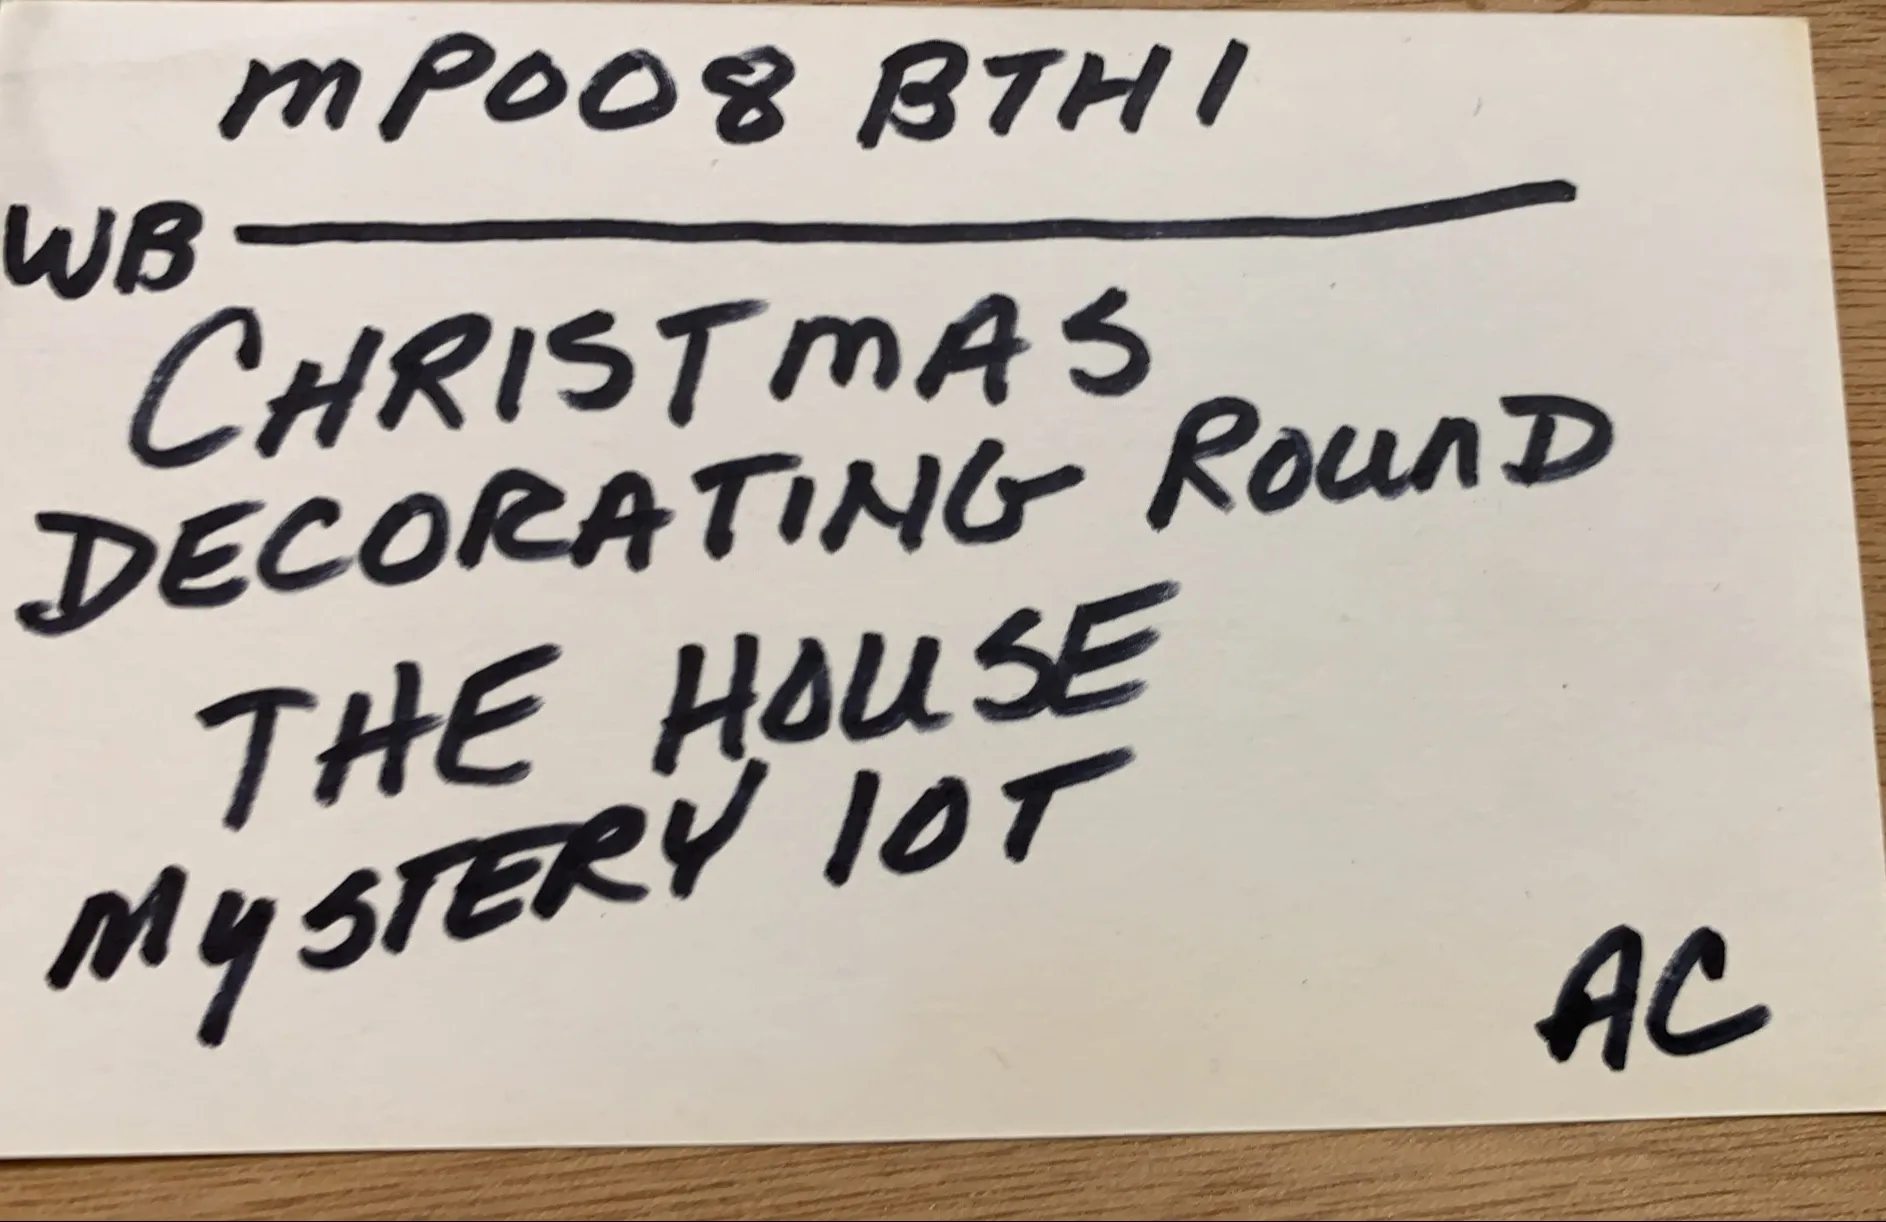 MP008 BTH1
WB
CHRISTMAS
DECORATING ROUND
THE HOUSE
MYSTERY 10T
AC